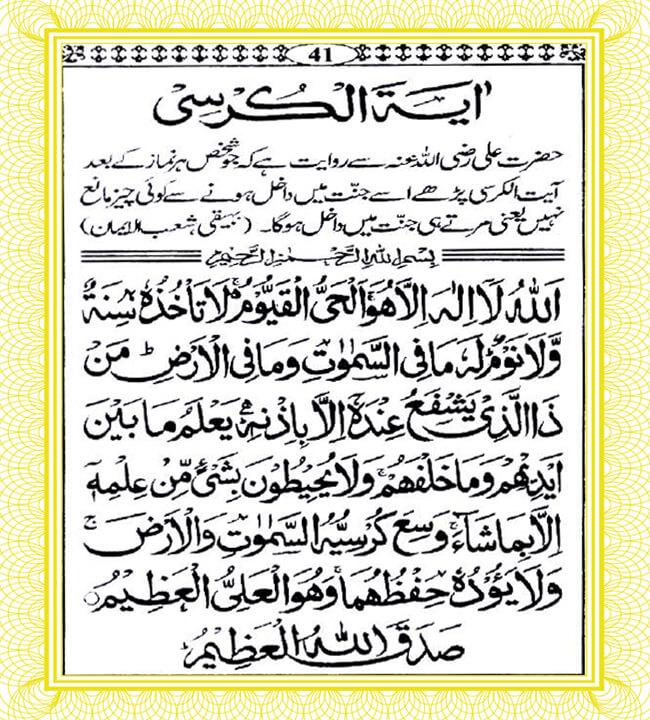 41
اٰیَةُ الْکُرْسِی
حضرت علی رضی اللہ عنہ سے روایت ہے کہ جو شخص ہر نماز کے بعد
آیت الکرسی پڑھے اسے جنّت میں داخل ہونے سے کوئی چیز مانع
نہیں یعنی مرتے ہی جنّت میں داخل ہوگا۔ (بیہقی شعب الایمان)
بِسْمِ اللّٰهِ الرَّحْمٰنِ الرَّحِيْمِ
اَللّٰهُ لَآ اِلٰهَ اِلَّا هُوَۚ اَلْحَیُّ الْقَیُّوْمُ ۚ لَا تَاْخُذُهٗ سِنَةٌ
وَّلَا نَوْمٌؕ لَهٗ مَا فِی السَّمٰوٰتِ وَمَا فِی الْاَرْضِؕ مَنْ
ذَا الَّذِیْ یَشْفَعُ عِنْدَهٗۤ اِلَّا بِاِذْنِهٖؕ یَعْلَمُ مَا بَیْنَ
اَیْدِیْهِمْ وَمَا خَلْفَهُمْۚ وَلَا یُحِیْطُوْنَ بِشَیْءٍ مِّنْ عِلْمِهٖۤ
اِلَّا بِمَا شَآءَۚ وَسِعَ کُرْسِیُّهُ السَّمٰوٰتِ وَالْاَرْضَۚ
وَلَا یَؤُدُهٗ حِفْظُهُمَاۚ وَهُوَ الْعَلِیُّ الْعَظِیْمُ○
صَدَقَ اللّٰهُ الْعَظِیْمُ